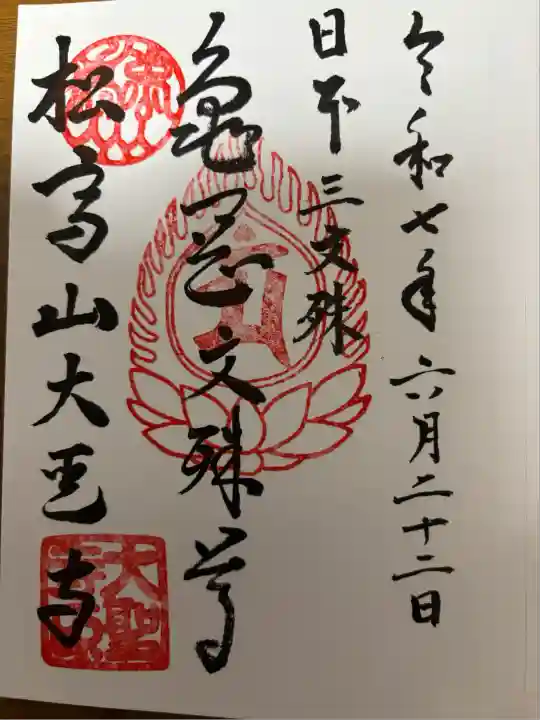 令和七年六月二十二日
日本三文殊
亀岡文殊尊
松高山大聖寺
大聖寺